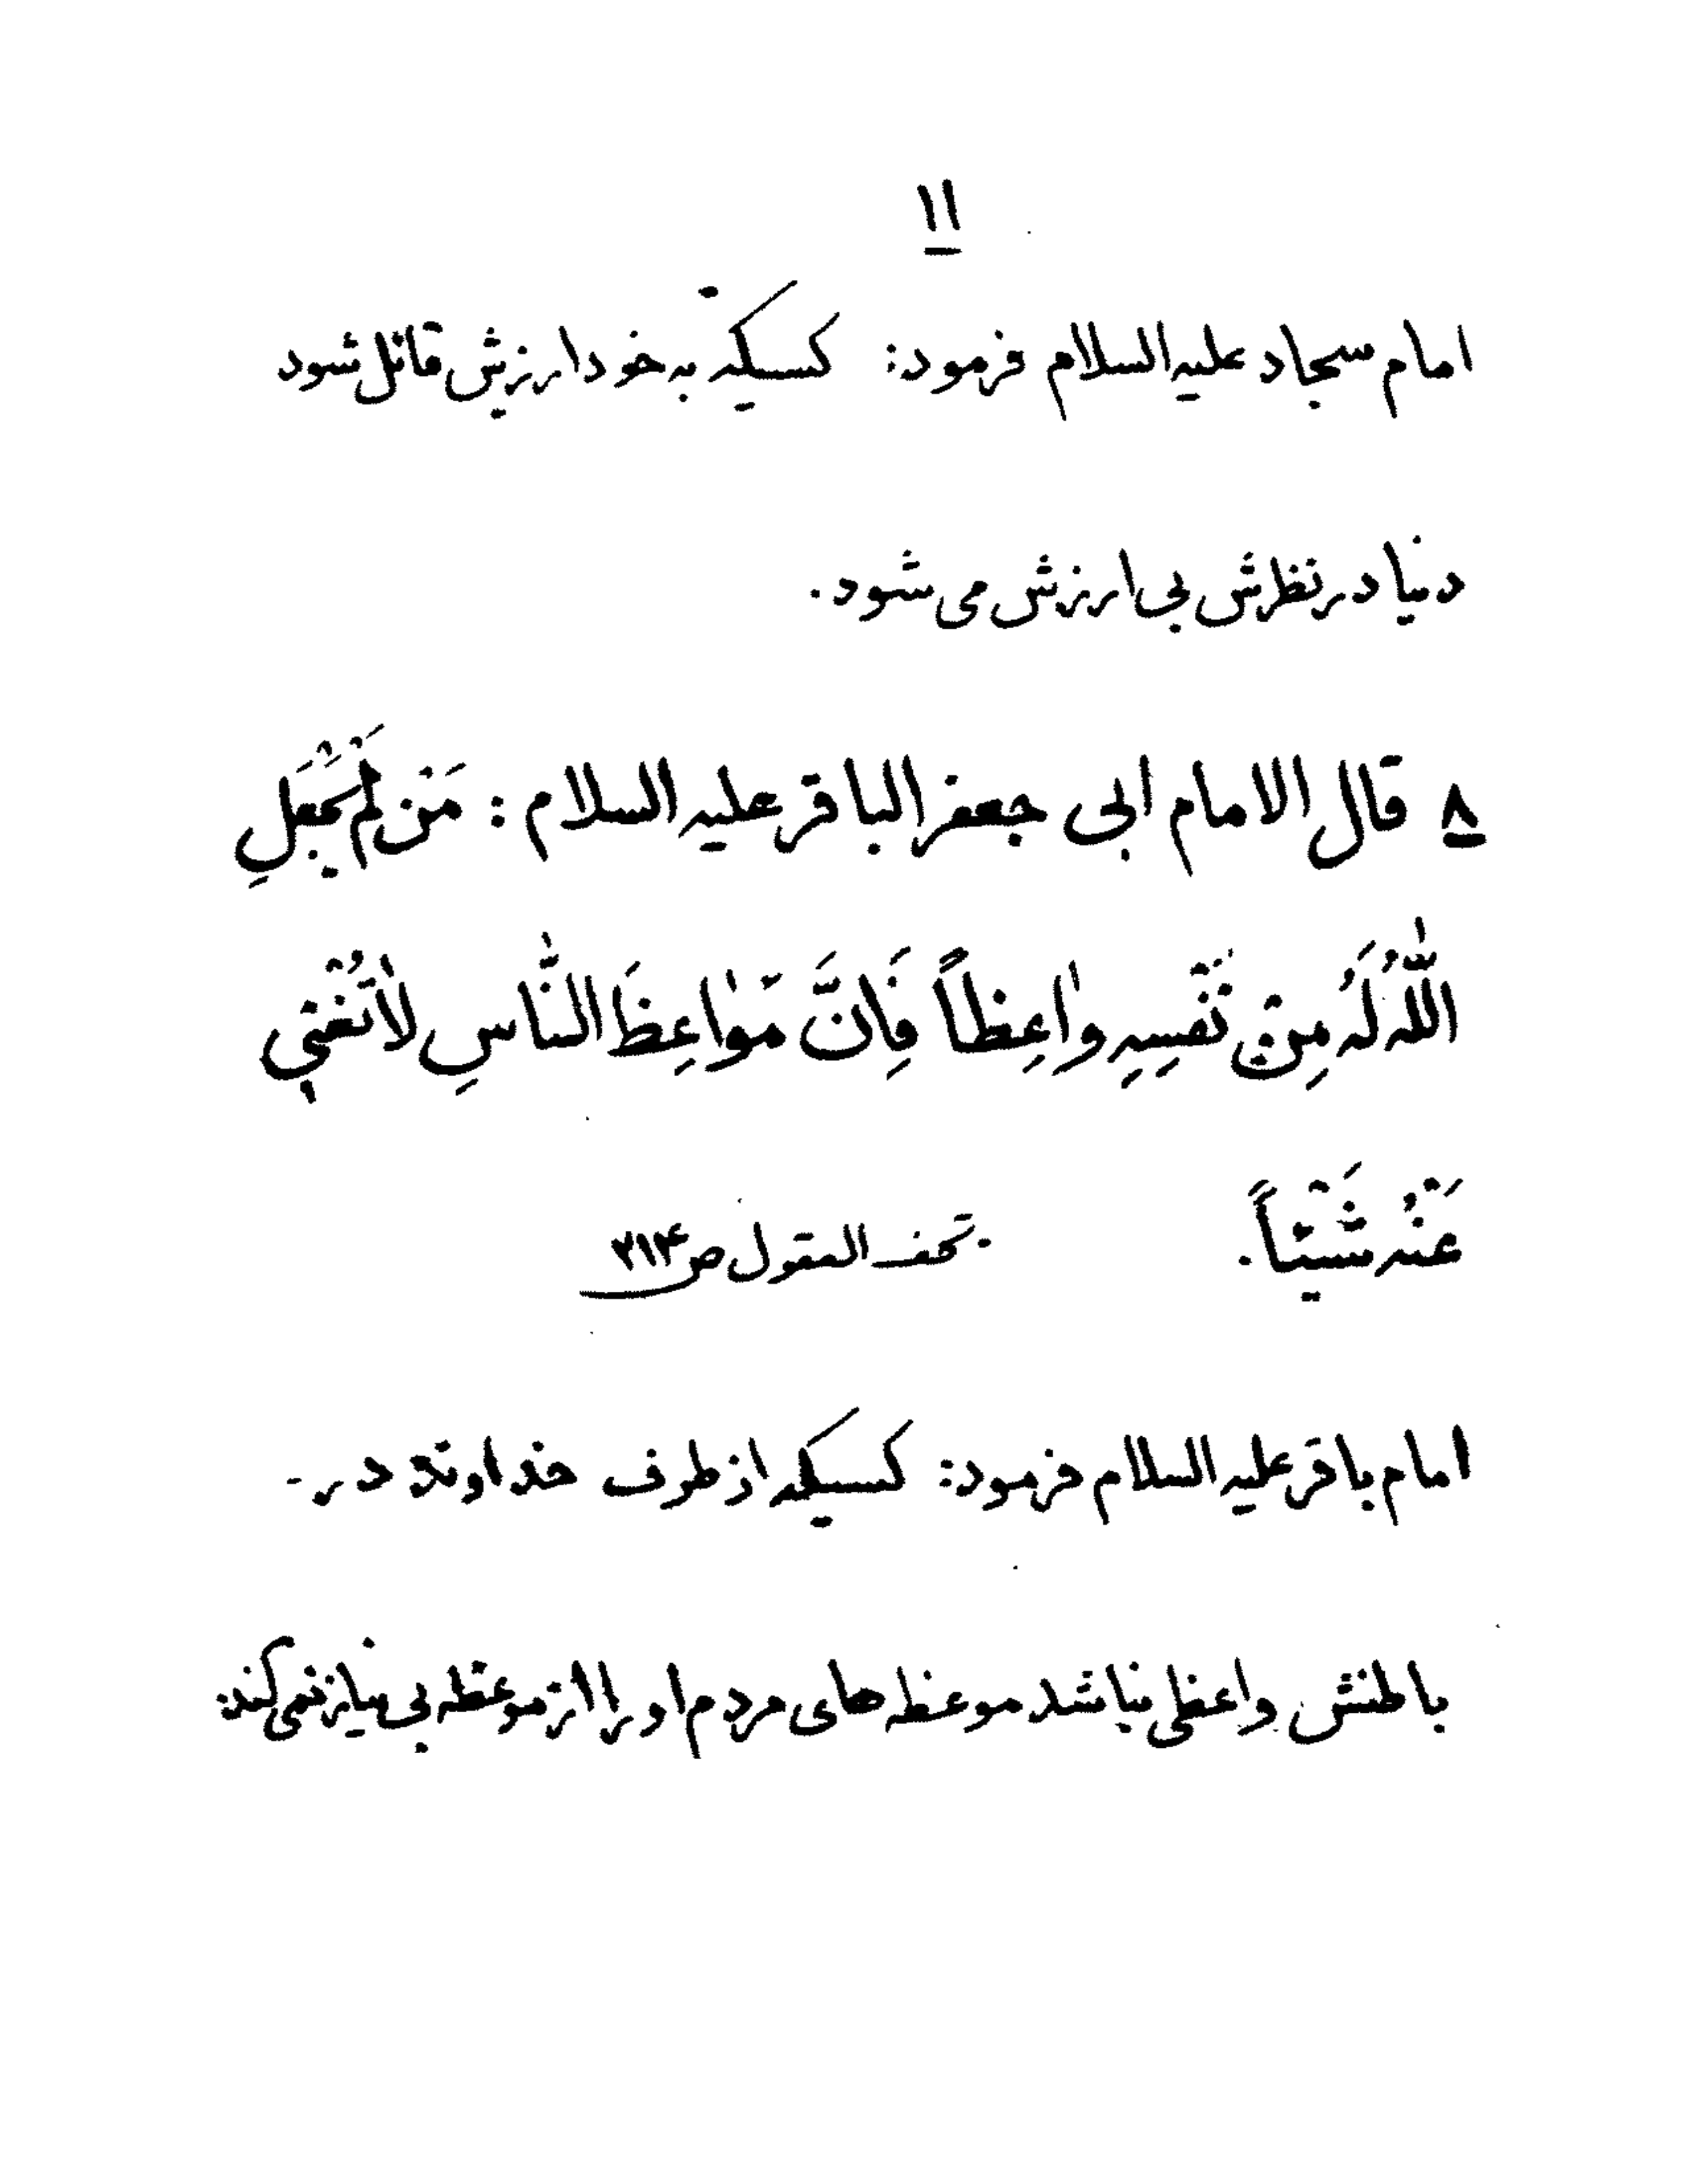 ۱۱
امام سجاد علیه السلام فرمود: کسیکه به خود ارزش قائل شود
دنیا در نظرش بی ارزش می شود.
۸ قال الامام ابی جعفر الباقر علیه السلام : مَنْ لَمْ یَجْعَلِ
اللّٰهُ لَهُ مِنْ نَفْسِهِ وٰاعِظاً فَاِنَّ مَوٰاعِظَ النّٰاسِ لاٰتُغْنِی
عَنْهُ شَیْئاً.
تحف العقول ص ۲۱۴
امام باقر علیه السلام فرمود: کسیکه از طرف خداوند در -
باطنش واعظی نباشد موعظه های مردم او را از موعظه بی نیاز نمی کند.